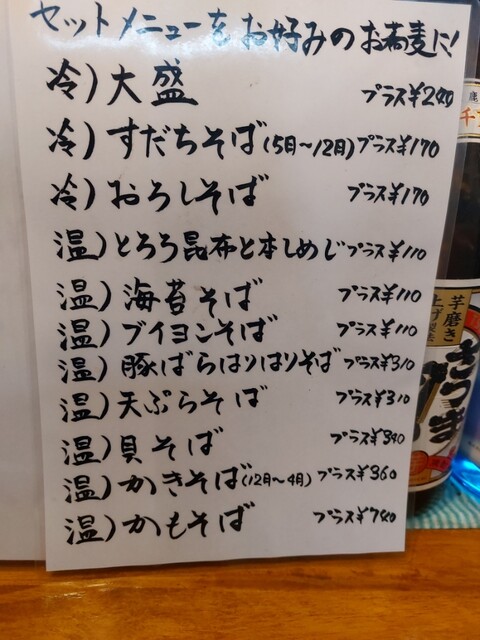 セットメニューをお好みのお蕎麦に!
冷)大盛 プラス¥240
冷)すだちそば(5月〜12月)プラス¥170
冷)おろしそば プラス¥170
温)とろろ昆布と本しめじプラス¥110
温)海苔そば プラス¥110
温)ブイヨンそば プラス¥110
温)豚ばらはりはりそば プラス¥310
温)天ぷらそば プラス¥310
温)貝そば プラス¥340
温)かきそば(12月〜4月)プラス¥360
温)かもそば プラス¥740
芋磨き
上げ製法
さつま